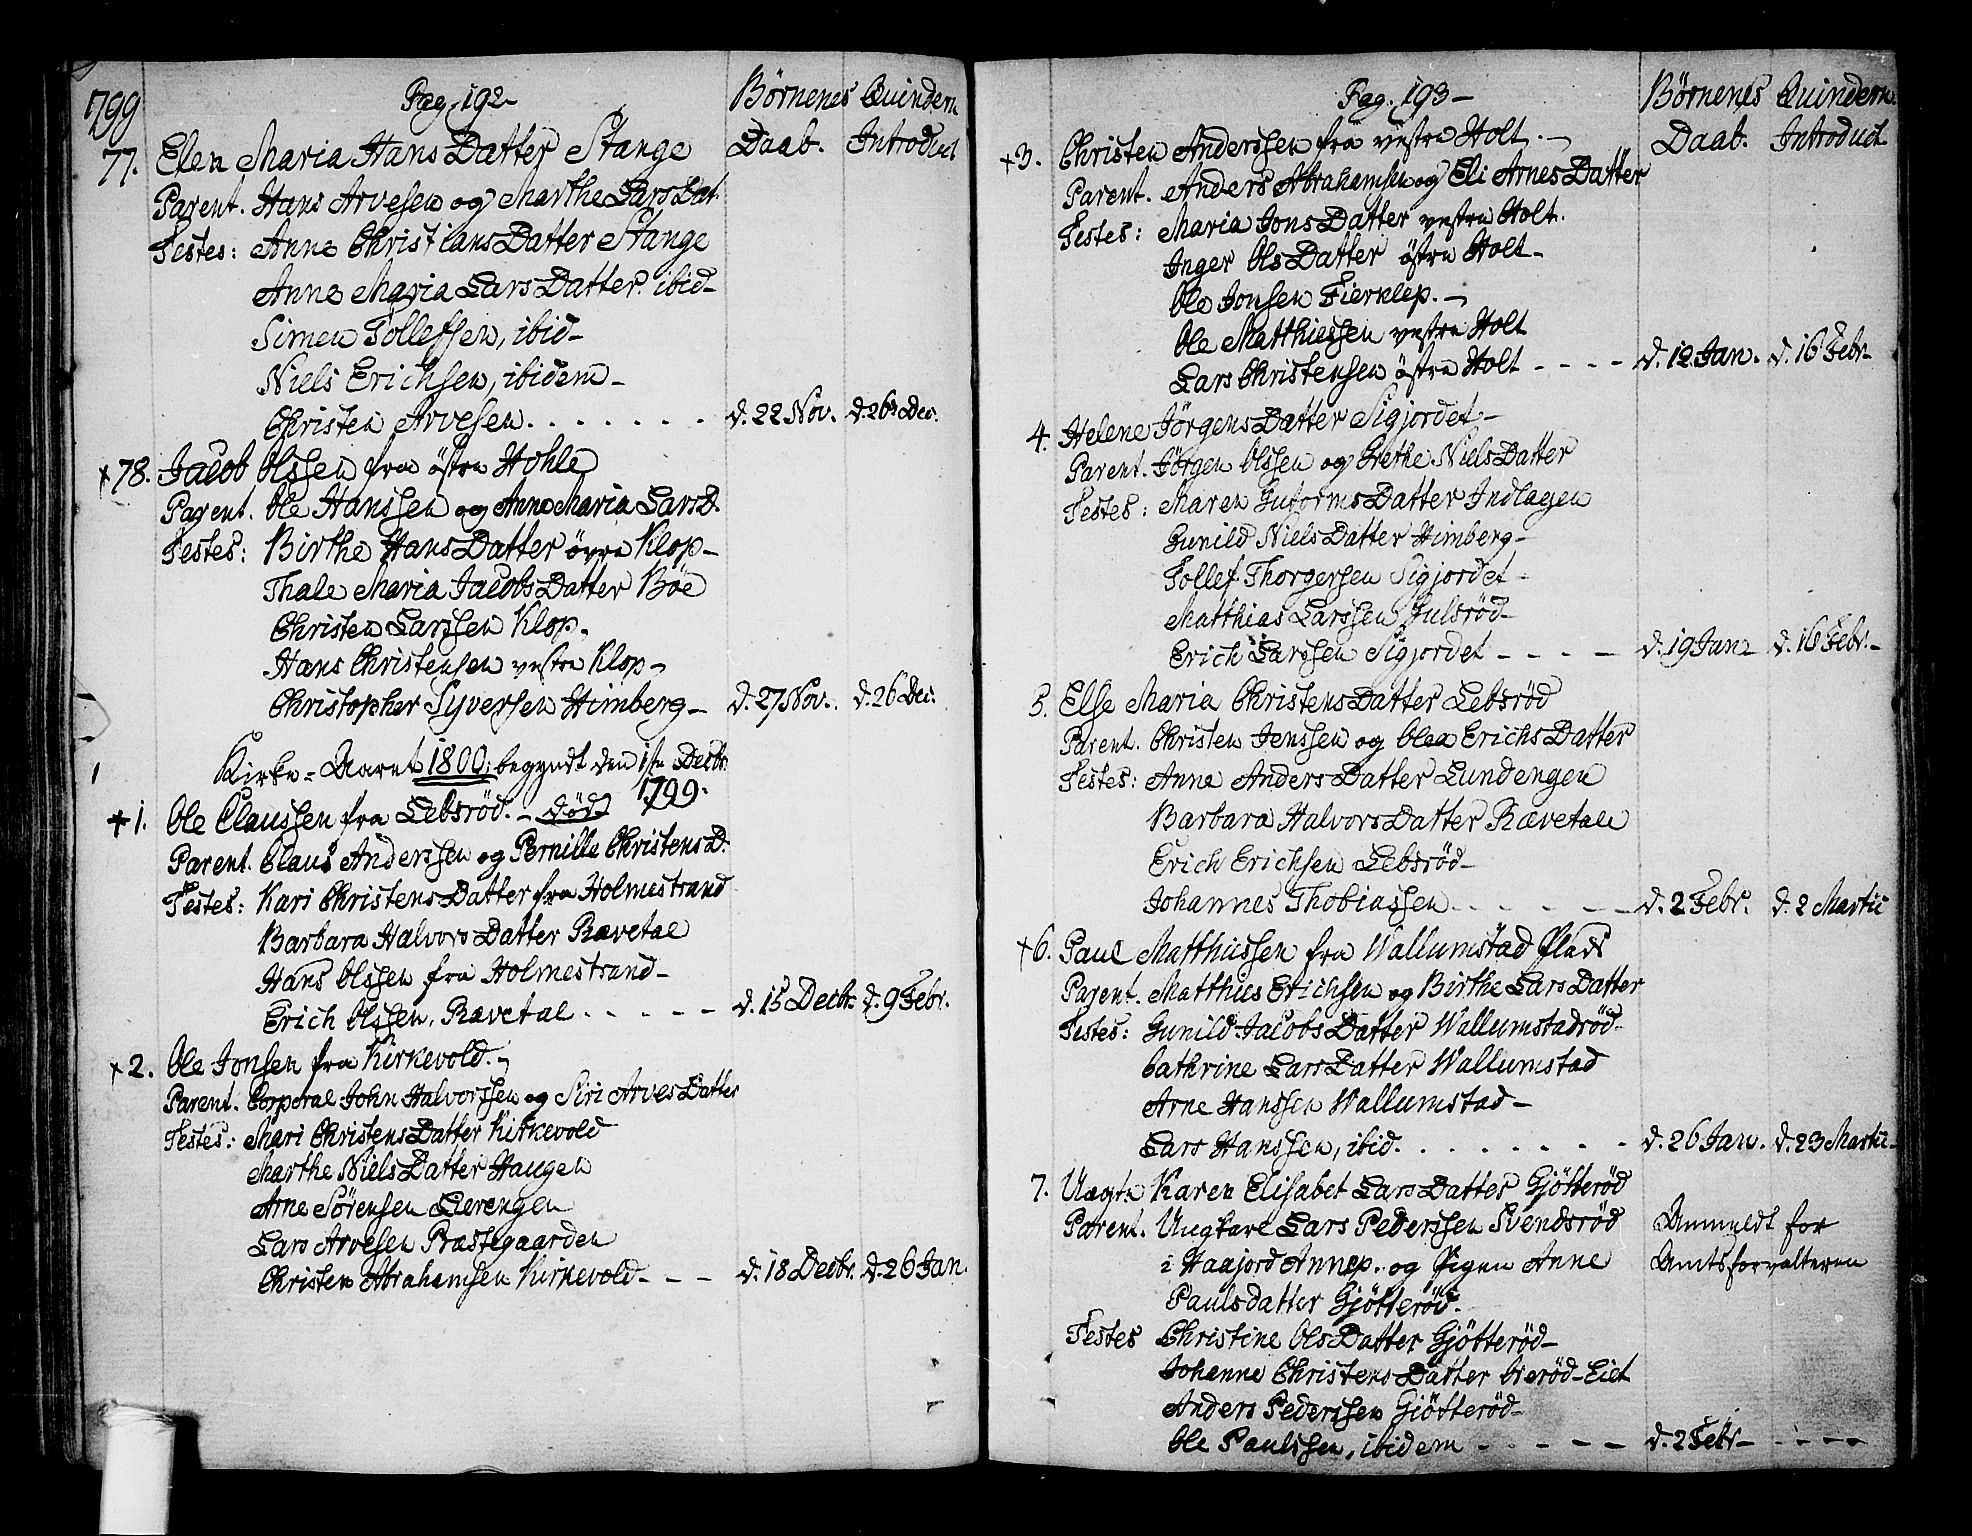 1799
Pag. 192
Børnenes Daab.
Quindern Introduct
77. Elen Maria HansDatter Stange
Parent. Hans Arvesen og Marthe LarsDat.
Testes: Anne ChristiansDatter Stange
Anne Maria LarsDatter. ibid-
Simen Tollefsen, ibid-
Niels Erichsen, ibidem-
Christen Arvesen . . . . . . . d. 22 Nov. d. 26 Dec.
+78. Jacob Olssen fra östra Hohle
Parent. Ole Hanssen og Anne Maria LarsD.
Testes: Birthe HansDatter övre Klop-
Thale Maria JacobsDatter Böe
Christen Larssen Klop.
Hans Christensen vestra Klop-
Christopher Syversen Himberg- d. 27 Nov. d. 26 Dec.
Kirke-Aaret 1800: begyndt den 1ste Decbr.
1799.
+1. Ole Claussen fra Lebsröd. - död
Parent. Claus Anderssen og Pernille ChristensD.
Testes: Kari ChristensDatter fra Holmestrand
Barbara HalvorsDatter Rævetal
Hans Olssen fra Holmestrand-
Erich Olssen. Rævetal . . . . . d. 15 Decbr. d. 9 Febr.
+2. Ole Jonsen fra Kirkevold. -
Parent. Corporal John Halvorssen og Siri ArvesDatter
Testes: Mari ChristensDatter Kirkevold
Marthe NielsDatter Haugen
Arne Sörensen Lerengen
Lars Arvesen Præstegaarden
Christen Abrahamsen Kirkevold - - - d. 18 Decbr. d. 26 Jan.
Pag. 193-
Børnenes Daab.
Quindern Introduct
+3. Christen Anderssen fra vestra Holt. -
Parent. Anders Abrahamsen og Eli ArnesDatter
Testes: Maria JonsDatter vestra Holt.
Inger OlsDatter östra Holt-
Ole Jonsen Fierklep. -
Ole Matthiessen vestra Holt
Lars Christensen östra Holt - - - - d. 12 Jan. d. 16 Febr.
4. Helene JörgensDatter Sigjordet-
Parent. Jörgen Olssen og Grethe NielsDatter
Testes: Maren GutormsDatter Indlagen
Gunild NielsDatter Himberg-
Tollef Thorgersen Sigjordet-
Matthias Larssen Julsröd-
Erich Larssen Sigjordet - - - - d. 19 Jan- d. 16 Febr.-
5. Else Maria ChristensDatter Lebsröd
Parent. Christen Jenssen og Olea ErichsDatter
Testes: Anne AndersDatter Lundengen
Barbara HalvorsDatter Rævetal
Erich Erichsen Lebsröd-
Johannes Thobiassen - - - - - - d. 2 Febr. d. 2 Martii
+6. Paul Matthiissen fra Wallumstad Plads
Parent. Matthies Erichsen og Birthe LarsDatter
Testes: Gunild JacobsDatter Wallumstadröd-
Cathrine LarsDatter Wallumstad
Arne Hanssen Wallumstad-
Lars Hanssen, ibid. . . . . . . . d. 26 Jan. d. 23 Martii-
7. Uægte Karen Elisabet LarsDatter Gjötteröd
Parent. Ungkarl Lars Pederssen Svendsröd
i Haajord Annep. og Pigen Anne
Paulsdatter Gjötteröd.
Anmeldt for
Amtsforvalteren
Testes Christine OlsDatter Gjötteröd-
Johanne ChristensDatter Oreröd-Eiet
Anders Pederssen Gjötteröd-
Ole Paulssen, ibidem - - - - - d. 2 Febr- - - - -